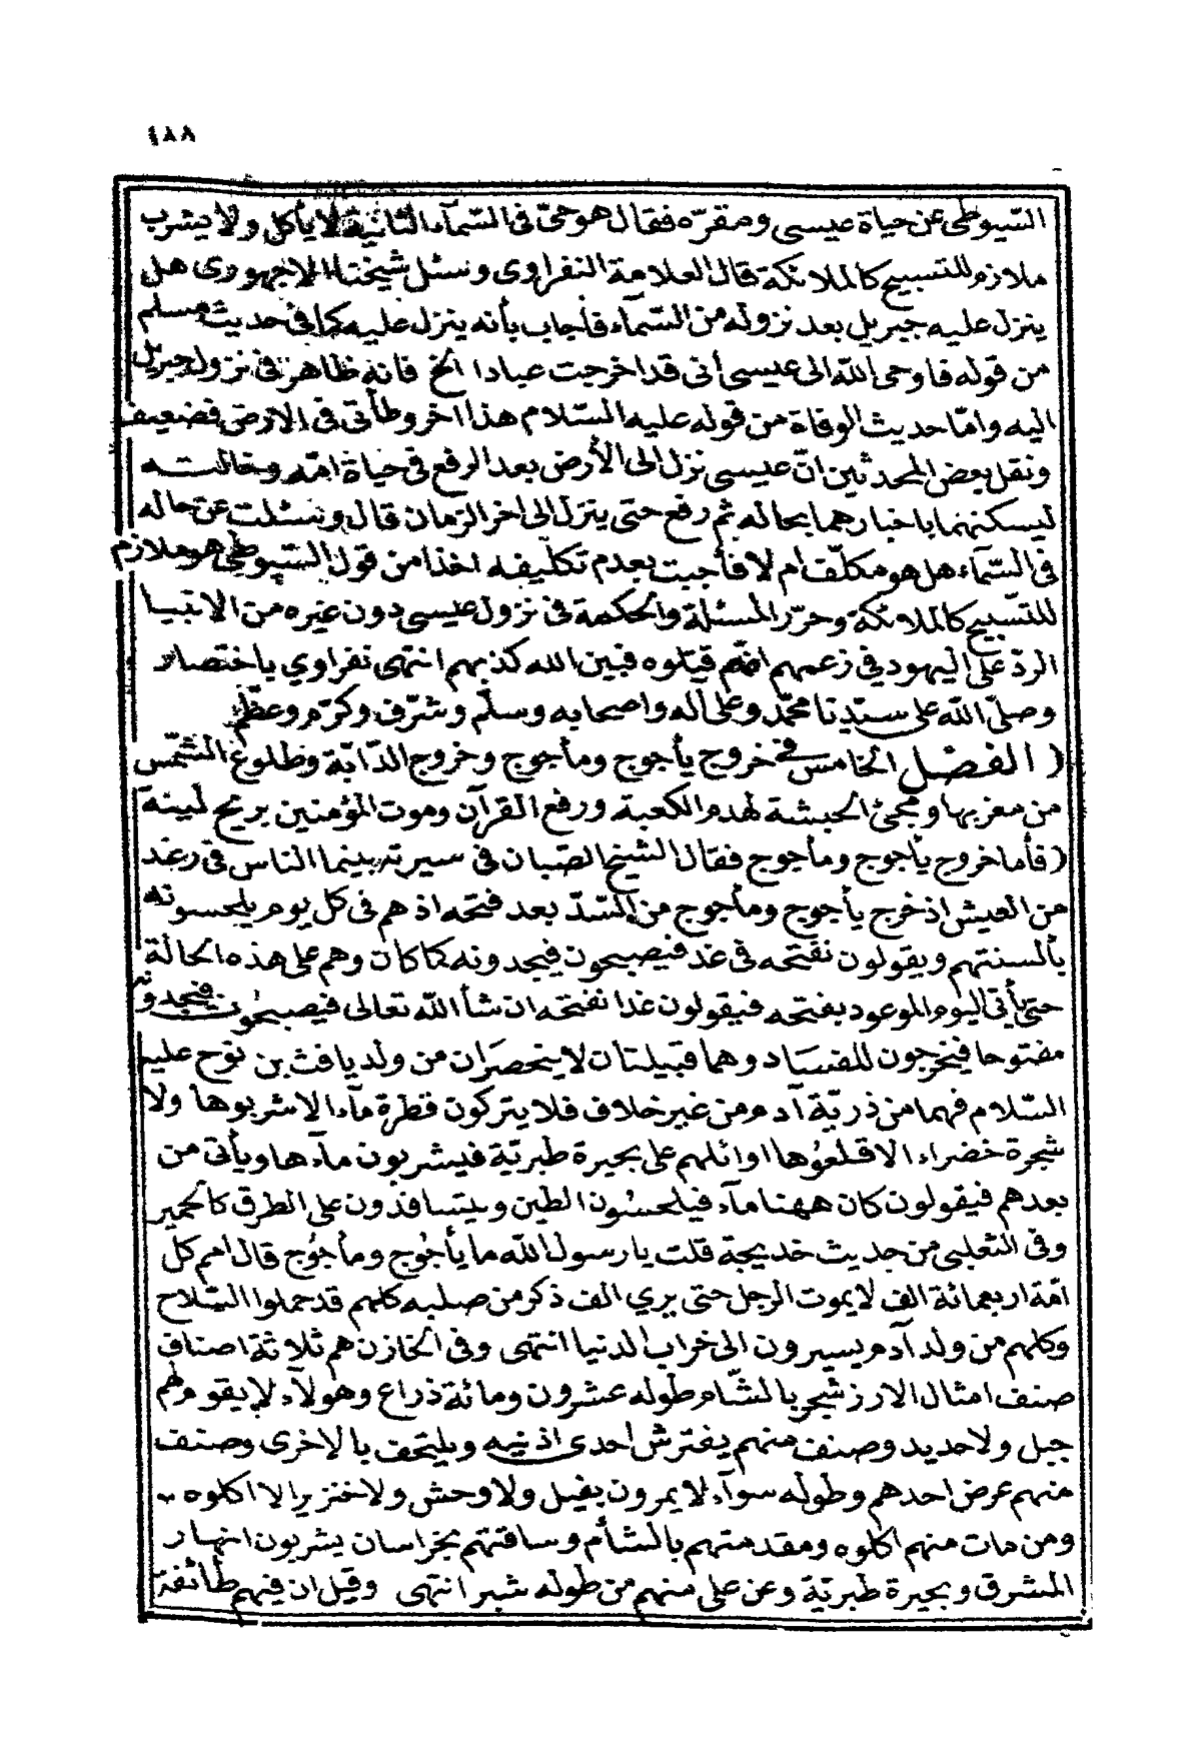 ١٨٨
السّيوطى عن حياة عيسى ومقرّه فقال هو حىّ فى السّمآء الثانية لا يأكل ولا يشرب
ملازم للتسبيح كالملائكة قال العلامة النفراوى وسئل شيخنا الاجهورى هل
ينزل عليه جبريل بعد نزوله من السّمآء فأجاب بأنه ينزل عليه كما فى حديث مسلم
من قوله فاوحى الله الى عيسى أنى قد اخرجت عبادا الخ فانه ظاهر فى نزول جبريل
اليه وامّا حديث الوفاة من قوله عليه السّلام هذا اخر وطأتى فى الارض فضعيف
ونقل بعض المحدثين انّ عيسى نزل الى الأرض بعد الرفع فى حياة امّه وخالته
ليسكنهما باخبارهما بحاله ثم رفع حتى ينزل الى اخر الزمان قال وسئلت عن حاله
فى السّمآء هل هو مكلّف أم لا فأجبت بعدم تكليفه اخذا من قول السّيوطى هو ملازم
للتّسبيح كالملائكة وحرّر المسئلة والحكمة فى نزول عيسى دون غيره من الانبيا
الردّ على اليهود فى زعمهم انّهم قتلوه فبين الله كذبهم انتهى نفراوي باختصار
وصلىّ الله على سيّدنا محمّد وعلى اله واصحابه وسلّم وشرّف وكرّم وعظّم
( الفصل الخامس فى خروج يأجوج ومأجوج وخروج الدّابّة وطلوع الشّمس
من مغربها ومجئ الحبشة لهدم الكعبة ورفع القرآن وموت المؤمنين بريح لينة
( فأما خروج يأجوج ومأجوج فقال الشيخ الصّبان فى سيرته بينما الناس فى رغد
من العيش اذ خرج يأجوج ومأجوج من السّدّ بعد فتحه اذ هم فى كل يوم يلحسونه
بألسنتهم ويقولون نفتحه فى غد فيصبحون فيجدونه كما كان وهم على هذه الحالة
حتى يأتى اليوم الموعود بفتحه فيقولون غدا نفتحه ان شأ الله تعالى فيصبحون فيجدونه
مفتوحا فيخرجون للفساد وهما قبيلتان لا ينحصران من ولد يافث بن نوح عليه
السّلام فهما من ذريّة آدم من غير خلاف فلا يتركون قطرة مآء الا شربوها ولا
شجرة خضراء الا قلعوها اوائلهم على بحيرة طبريّة فيشربون مآءها ويأتى من
بعدهم فيقولون كان ههنا مآء فيلحسون الطين ويتسافدون على الطرق كالحمير
وفى الثعلبى من حديث خديجة قلت يا رسول الله ما يأجوج ومأجوج قال امم كل
امّة اربعمائة الف لا يموت الرجل حتى يري الف ذكر من صلبه كلهم قد حملوا السّلاح
وكلهم من ولد آدم يسيرون الى خراب الدنيا انتهى وفى الخازن هم ثلاثة اصناف
صنف امثال الارز شجر بالشّام طوله عشرون ومائة ذراع وهولآء لا يقوم لهم
جبل ولا حديد وصنف منهم يفترش احدى اذنيه ويلتحف بالاخرى وصنف
منهم عرض احدهم وطوله سوآء لا يمرون بفيل ولا وحش ولا خنزير الا اكلوه
ومن مات منهم اكلوه ومقدمتهم بالشأم وساقتهم بخراسان يشربون انهار
المشرق وبحيرة طبريّة وعن على منهم من طوله شبر انتهى وقيل ان فيهم طائفة